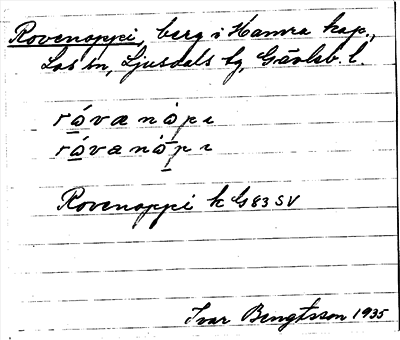 Rovenoppi, berg i Hamra kap.,
Los sn, Ljusdals tg, Gävleb. l.
råvænåpı
råvanåpı
Rovenoppi k G83SV
Ivar Bengtsson 1935